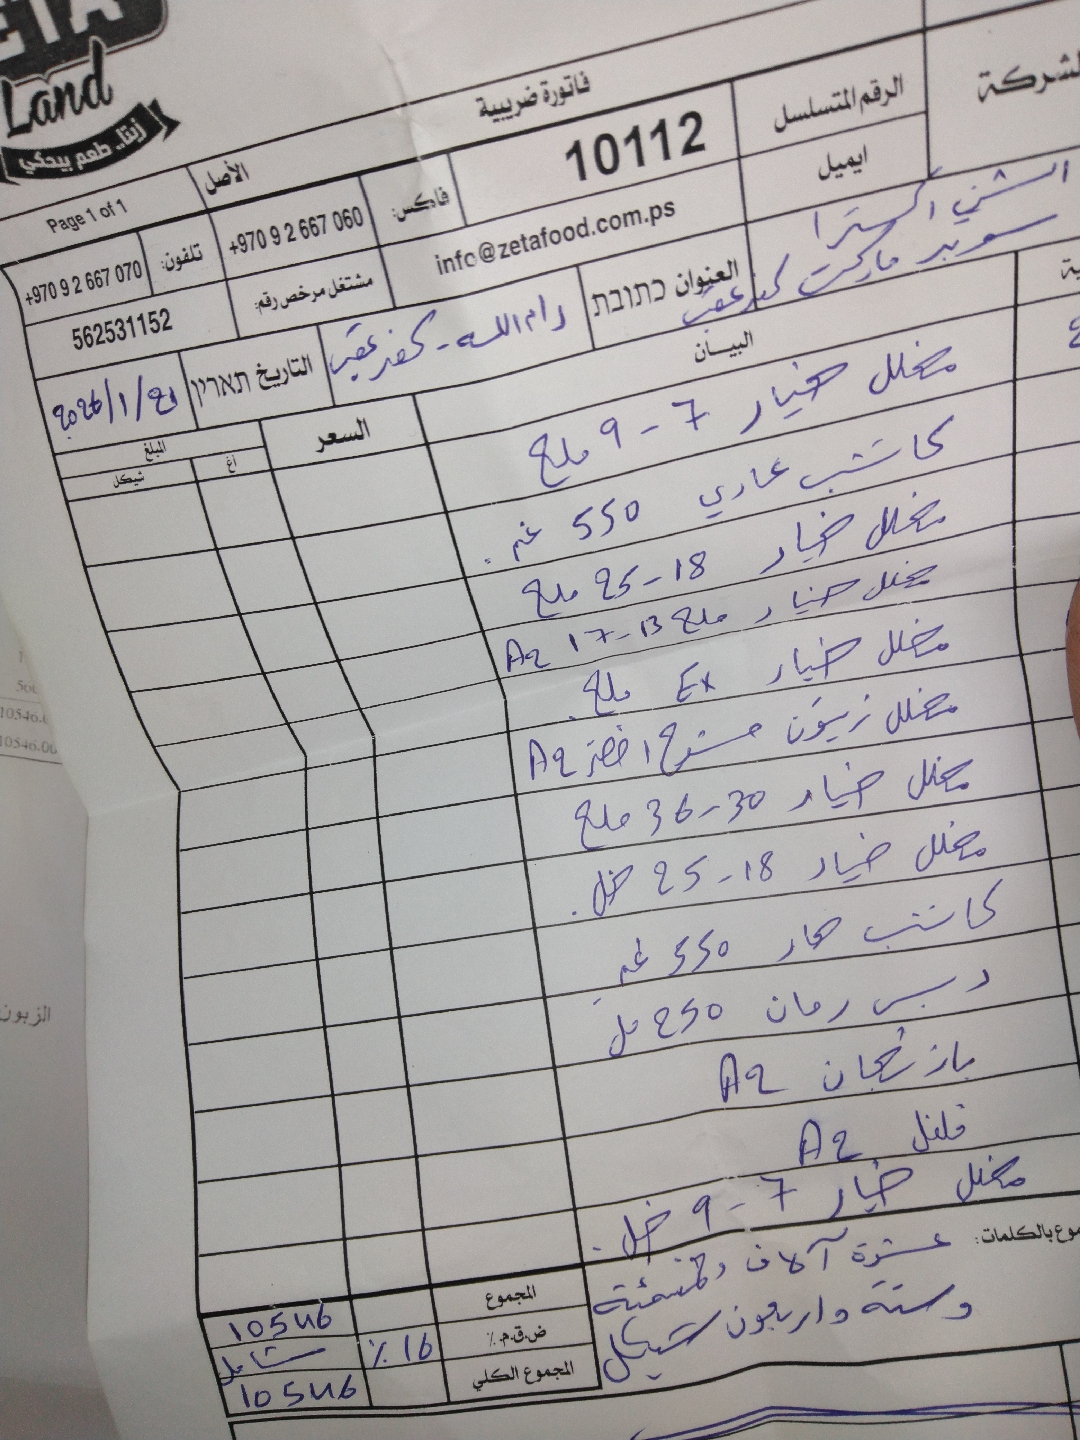 ETA
Land
زيتا.. طعم بيحكي
Page 1 of 1
الأصل
فاتورة ضريبية
لشركة
الرقم المتسلسل
10112
فاكس:
+970 9 2 667 060
تلفون:
+970 9 2 667 070
ايميل
info@zetafood.com.ps
مشتغل مرخص رقم:
562531152
اكسترا
سوبر ماركت كفر عقب
العنوان כתובת
رام الله - كفر عقب
التاريخ תאריך
البيان
السعر
المبلغ
اغ
شيكل
مخلل خيار 7 - 9 ملح
كاتشب عادي 550 غم.
مخلل خيار 18-25 ملح
مخلل خيار ملح 13-17 A2
مخلل خيار Ex ملح.
مخلل زيتون مشرح اخضر A2
مخلل خيار 30-36 ملح
مخلل خيار 18-25 خل.
كاتشب حار 550 غم.
دبس رمان 250 مل
باذنجان A2
فلفل A2
مخلل خيار 7 - 9 خل.
موع بالكلمات: عشرة آلاف وخمسمئة
وستة واربعون شيكل
المجموع
10546
ض.ق.م.٪
16 ٪
شامل
المجموع الكلي
10546
10546.00
الزبون